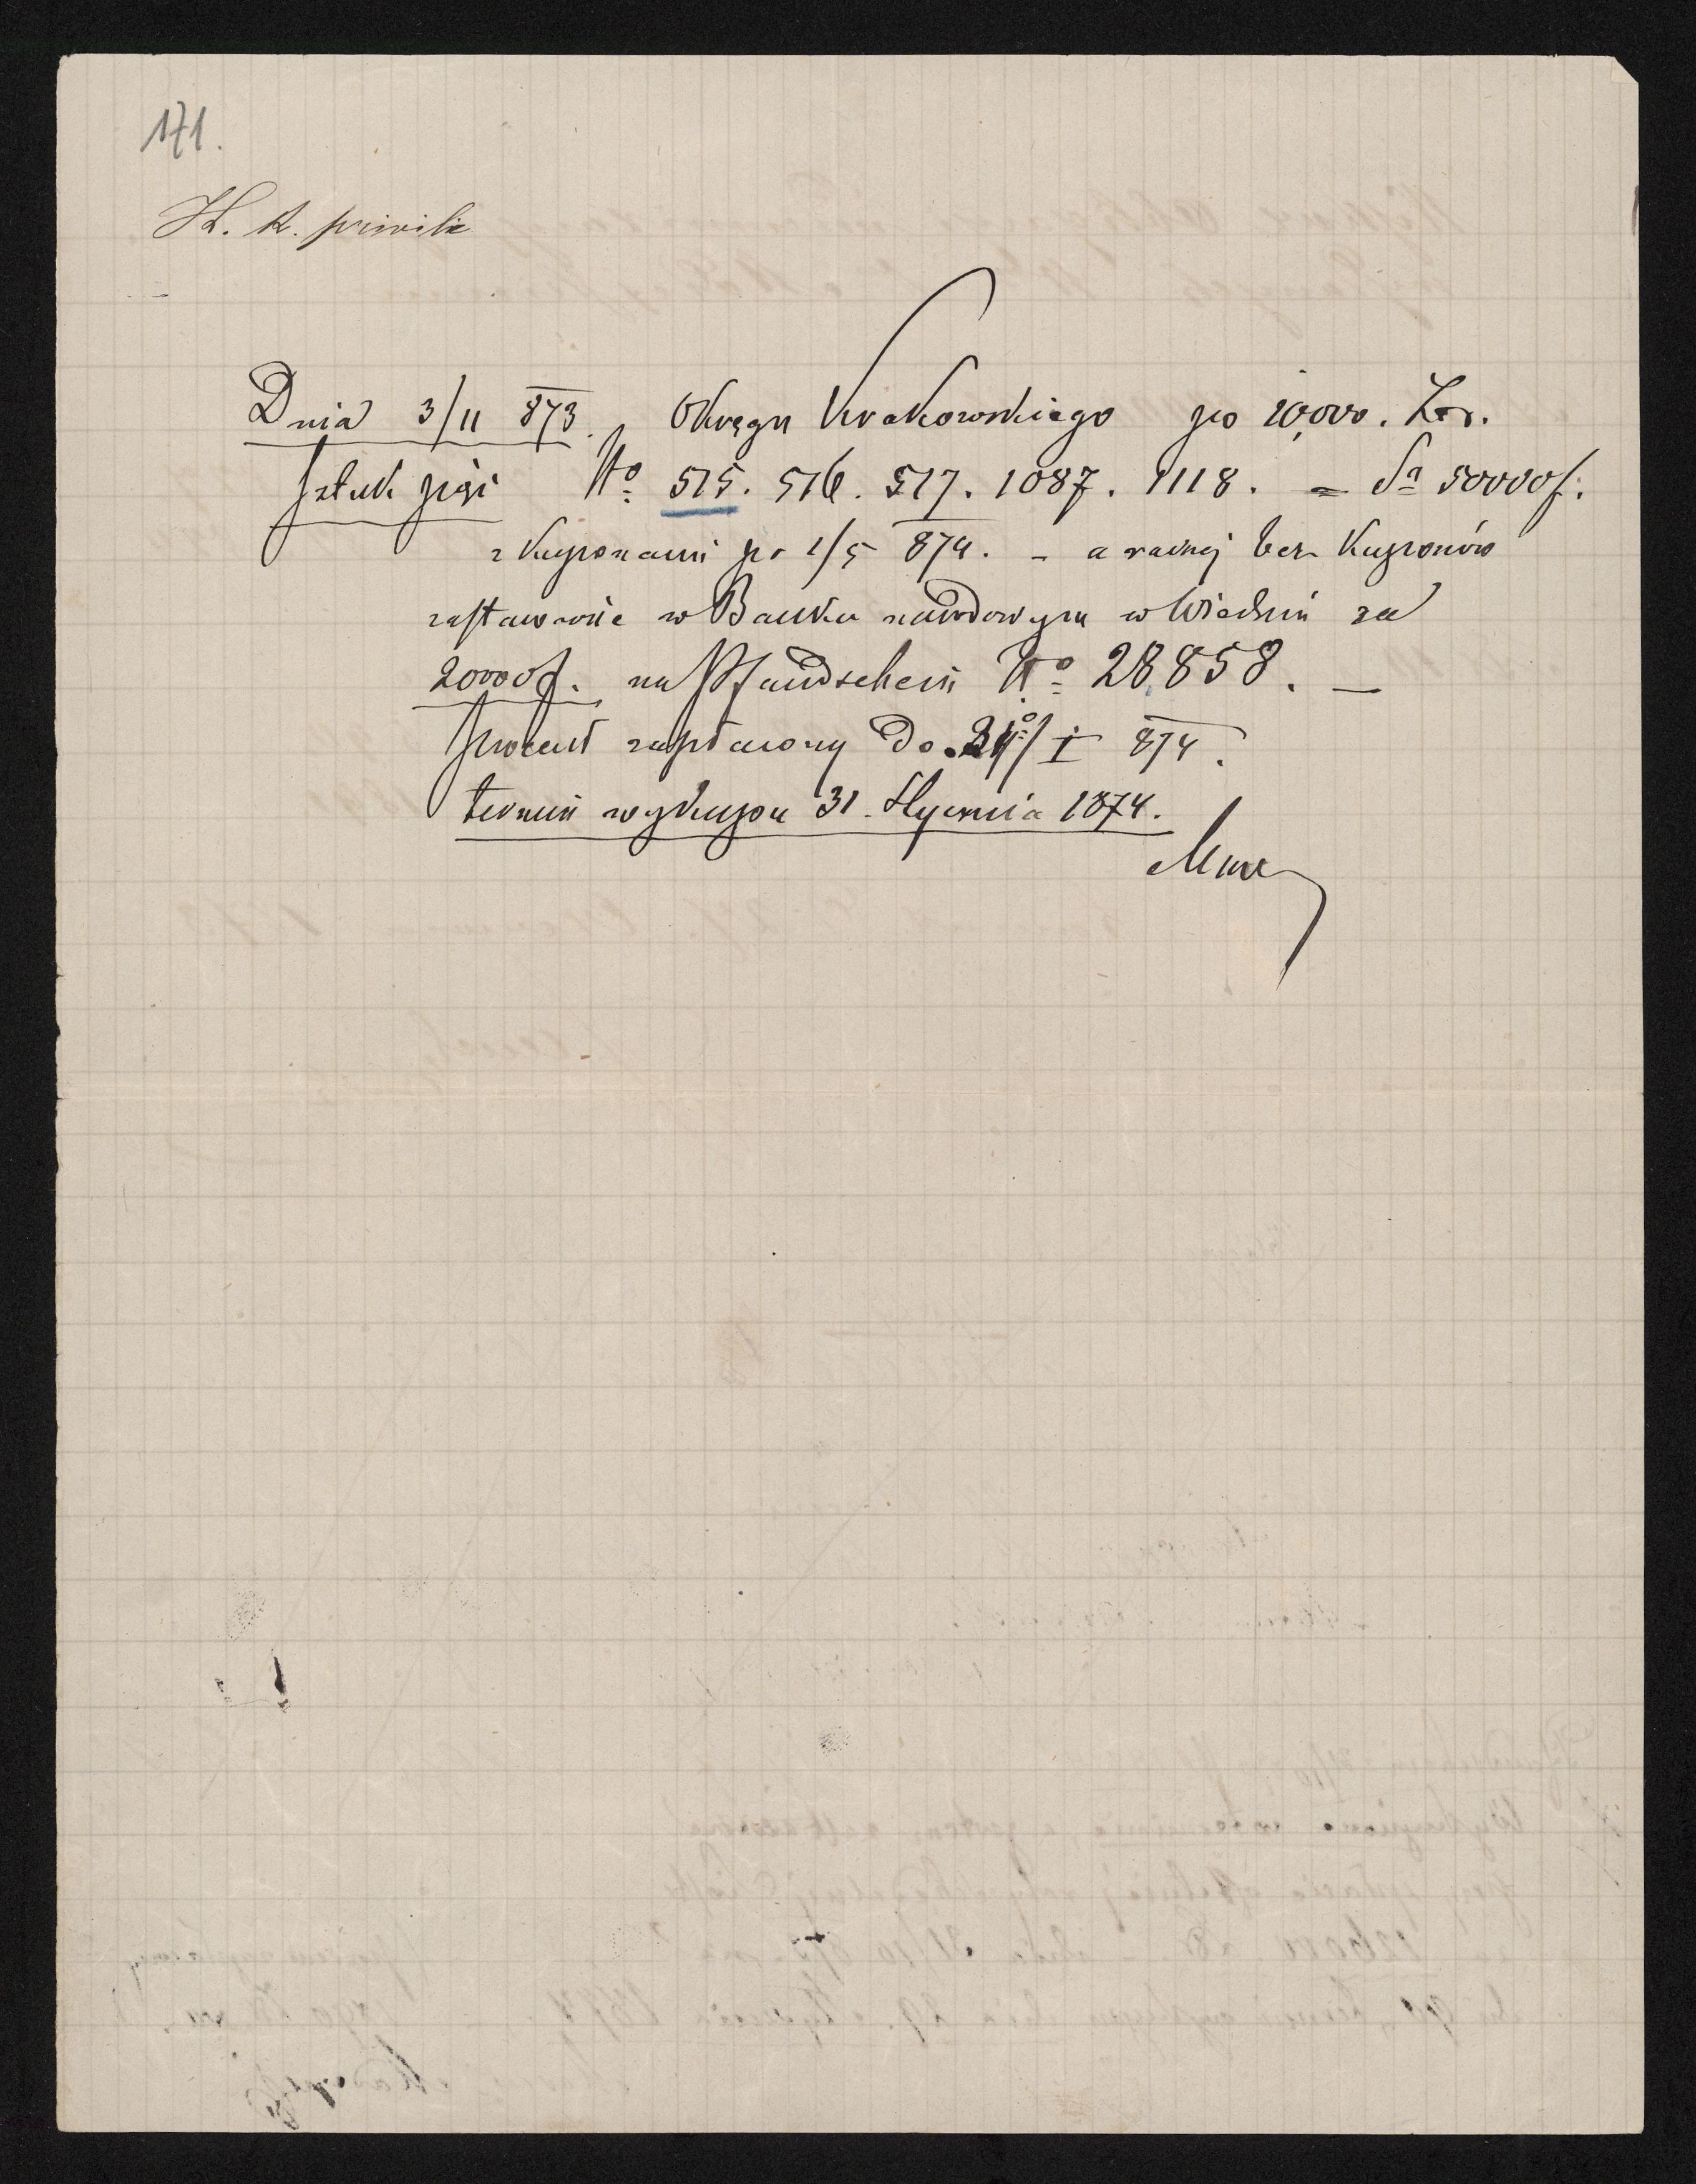 171.
K. K. privile
Dnia 3/11 873. Okręgu Krakowskiego po 10,000. Złr.
sztuk pięć No 515. 516. 517. 1087. 1118. = Sa 50000f.
z kuponami po 1/5 874. - a raczej bez kuponów
zastawione w Banku narodowym w Wiedniu za
20000f. na Pfandschein No 28858. —
procent zapłacony do /I 874.
termin wykupu 31. Stycznia 1874.